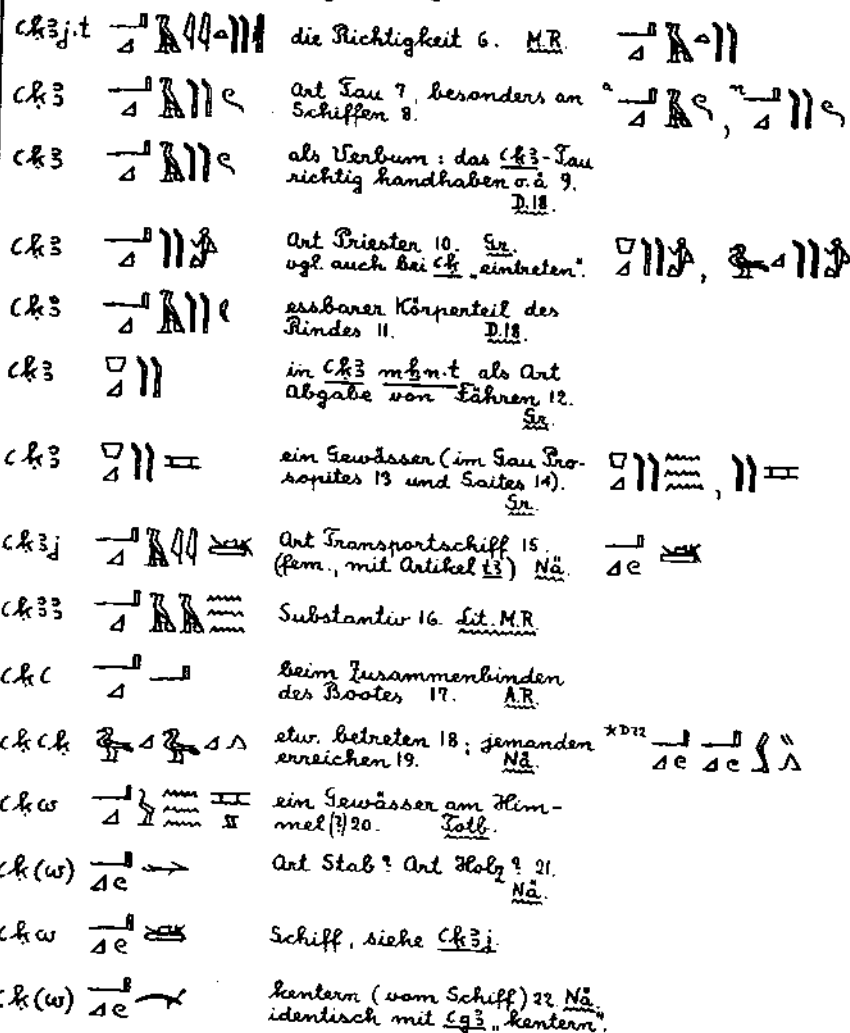 ꜥḳꜣj.t die Richtigkeit 6. M.R.
ꜥḳꜣ Art Tau 7, besonders an
Schiffen 8.
ꜥḳꜣ als Verbum: das ꜥḳꜣ-Tau
richtig handhaben o.ä 9.
D.18.
ꜥḳꜣ Art Priester 10. Gr.
vgl. auch bei ꜥḳ „eintreten".
ꜥḳꜣ essbarer Körperteil des
Rindes 11. D.18.
ꜥḳꜣ in ꜥḳꜣ mẖn.t als Art
Abgabe von Fähren 12.
Gr.
ꜥḳꜣ ein Gewässer (im Gau Pro-
sopites 13 und Saites 14).
Gr.
ꜥḳꜣj Art Transportschiff 15.
(fem., mit Artikel tꜣ) Nä.
ꜥḳꜣꜣ Substantiv 16. Lit. M.R.
ꜥḳꜥ beim Zusammenbinden
des Bootes 17. A.R.
ꜥḳꜥḳ etw. betreten 18; jemanden *D22
erreichen 19. Nä.
ꜥḳw ein Gewässer am Him-
mel (?) 20. Totb.
ꜥḳ(w) Art Stab? Art Holz? 21.
Nä.
ꜥḳw Schiff, siehe ꜥḳꜣj.
ꜥḳ(w) kentern (vom Schiff) 22. Nä.
identisch mit ꜥgꜣ „kentern".